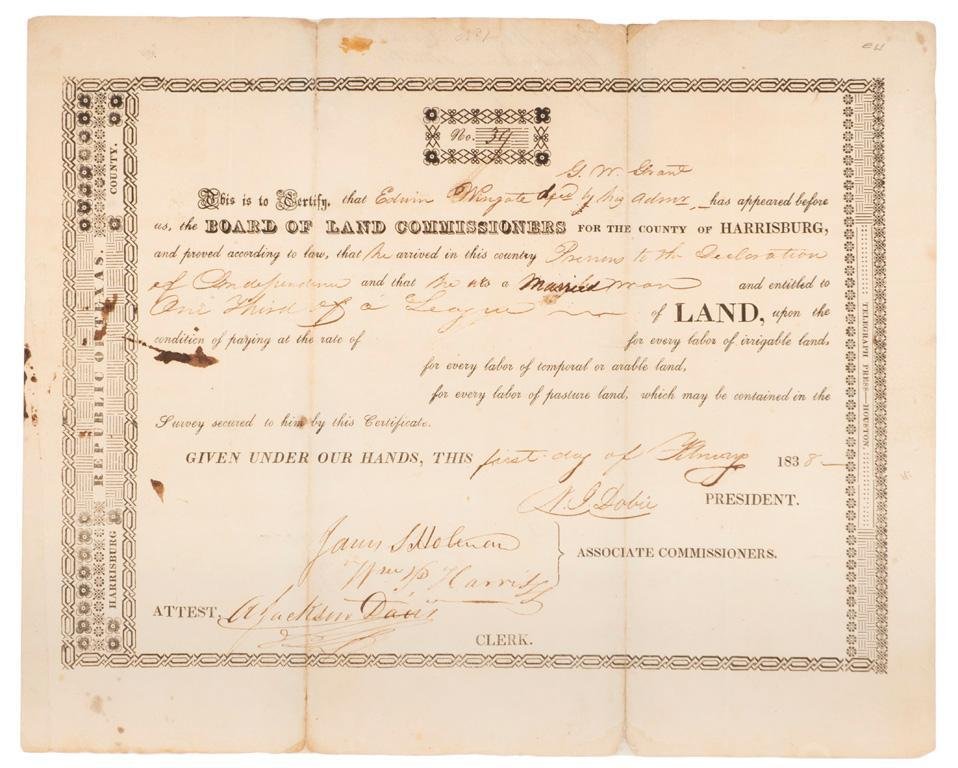 No. 39
G. W. Grant
This is to Certify, that Edwin Wingate decd by his admr has appeared before
us, the BOARD OF LAND COMMISSIONERS FOR THE COUNTY OF HARRISBURG,
and proved according to law, that he arrived in this country Previous to the Declaration
of Independence and that he was a Married man and entitled to
One Third of a League of LAND, upon the
condition of paying at the rate of for every labor of irrigable land,
for every labor of temporal or arable land,
for every labor of pasture land, which may be contained in the
Survey secured to him by this Certificate.
GIVEN UNDER OUR HANDS, THIS first day of February 1838
N. J. Dobie PRESIDENT.
James S Holman
Wm P Harris
ASSOCIATE COMMISSIONERS.
ATTEST, A Jackson Davis
CLERK.
HARRISBURG REPUBLIC OF TEXAS. COUNTY.
TELEGRAPH PRESS—HOUSTON.